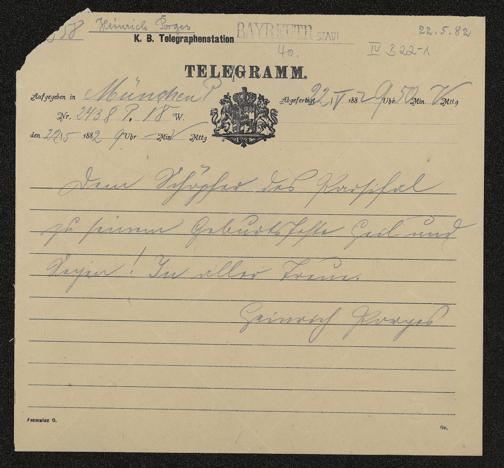 58 Heinrich Porges
22.5.82
K. B. Telegraphenstation BAYREUTH STADT
40.
IV B 22-1
TELEGRAMM.
Aufgegeben in München P Abgefertigt 22/V 1882 9 Uhr 50 Min. V Mttg
Nr. 2438 P. 18 W.
den 22/5 1882 9 Uhr — Min. V Mttg
Dem Schöpfer des Parsifal
zu seinem Geburtsfeste Heil und
Segen! In aller Treue.
Heinrich Porges
Formular G.